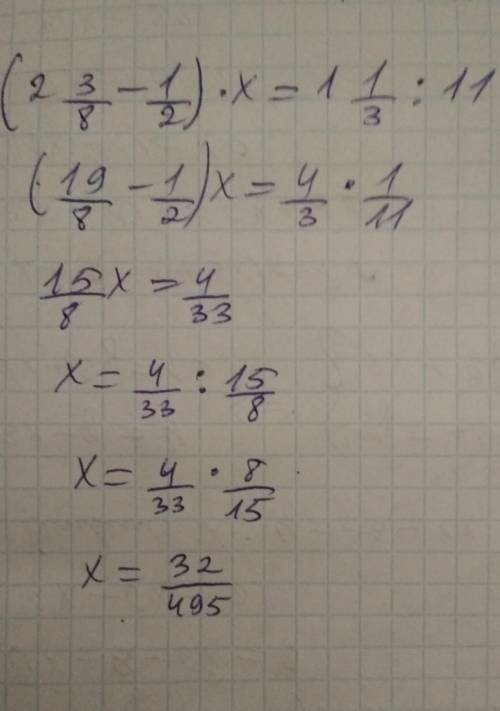 (2 3/8 - 1/2) · x = 1 1/3 : 11
(19/8 - 1/2)x = 4/3 · 1/11
15/8 x = 4/33
x = 4/33 : 15/8
x = 4/33 · 8/15
x = 32/495